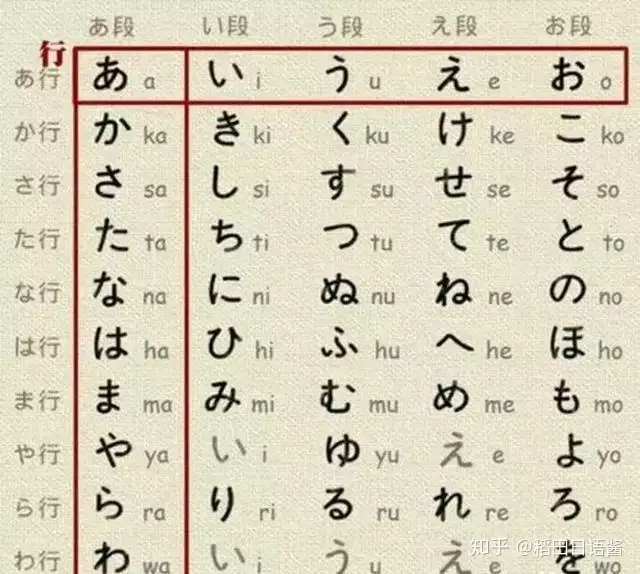 あ段 い段 う段 え段 お段
行
あ行 あ a い i う u え e お o
か行 か ka き ki く ku け ke こ ko
さ行 さ sa し si す su せ se そ so
た行 た ta ち ti つ tu て te と to
な行 な na に ni ぬ nu ね ne の no
は行 は ha ひ hi ふ hu へ he ほ ho
ま行 ま ma み mi む mu め me も mo
や行 や ya い i ゆ yu え e よ yo
ら行 ら ra り ri る ru れ re ろ ro
わ行 わ wa い i う u え e を wo
知乎 @稻田日语酱